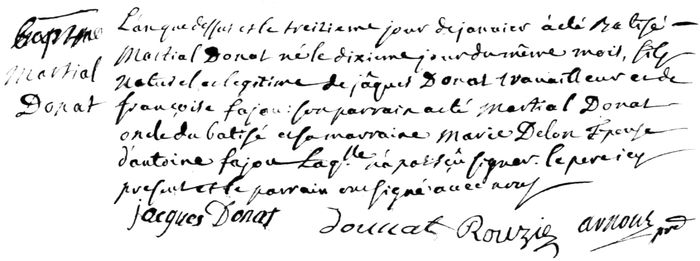 Baptme
Martial
Donat
L'an que dessus et le treizieme jour de janvier a été Batisé
Martial Donat né le dixieme jour du même mois, fils
naturel et legitime de jâques Donat travailleur et de
françoise fajou: son parrain a été Martial Donat
oncle du batisé et sa marraine Marie Delon Epouse
d'antoine fajou Laqlle n'a pas sçû signer. le pere icy
present et le parrain ont signé avec nous
jacques Donat Donnat Rouzie arnoux pré